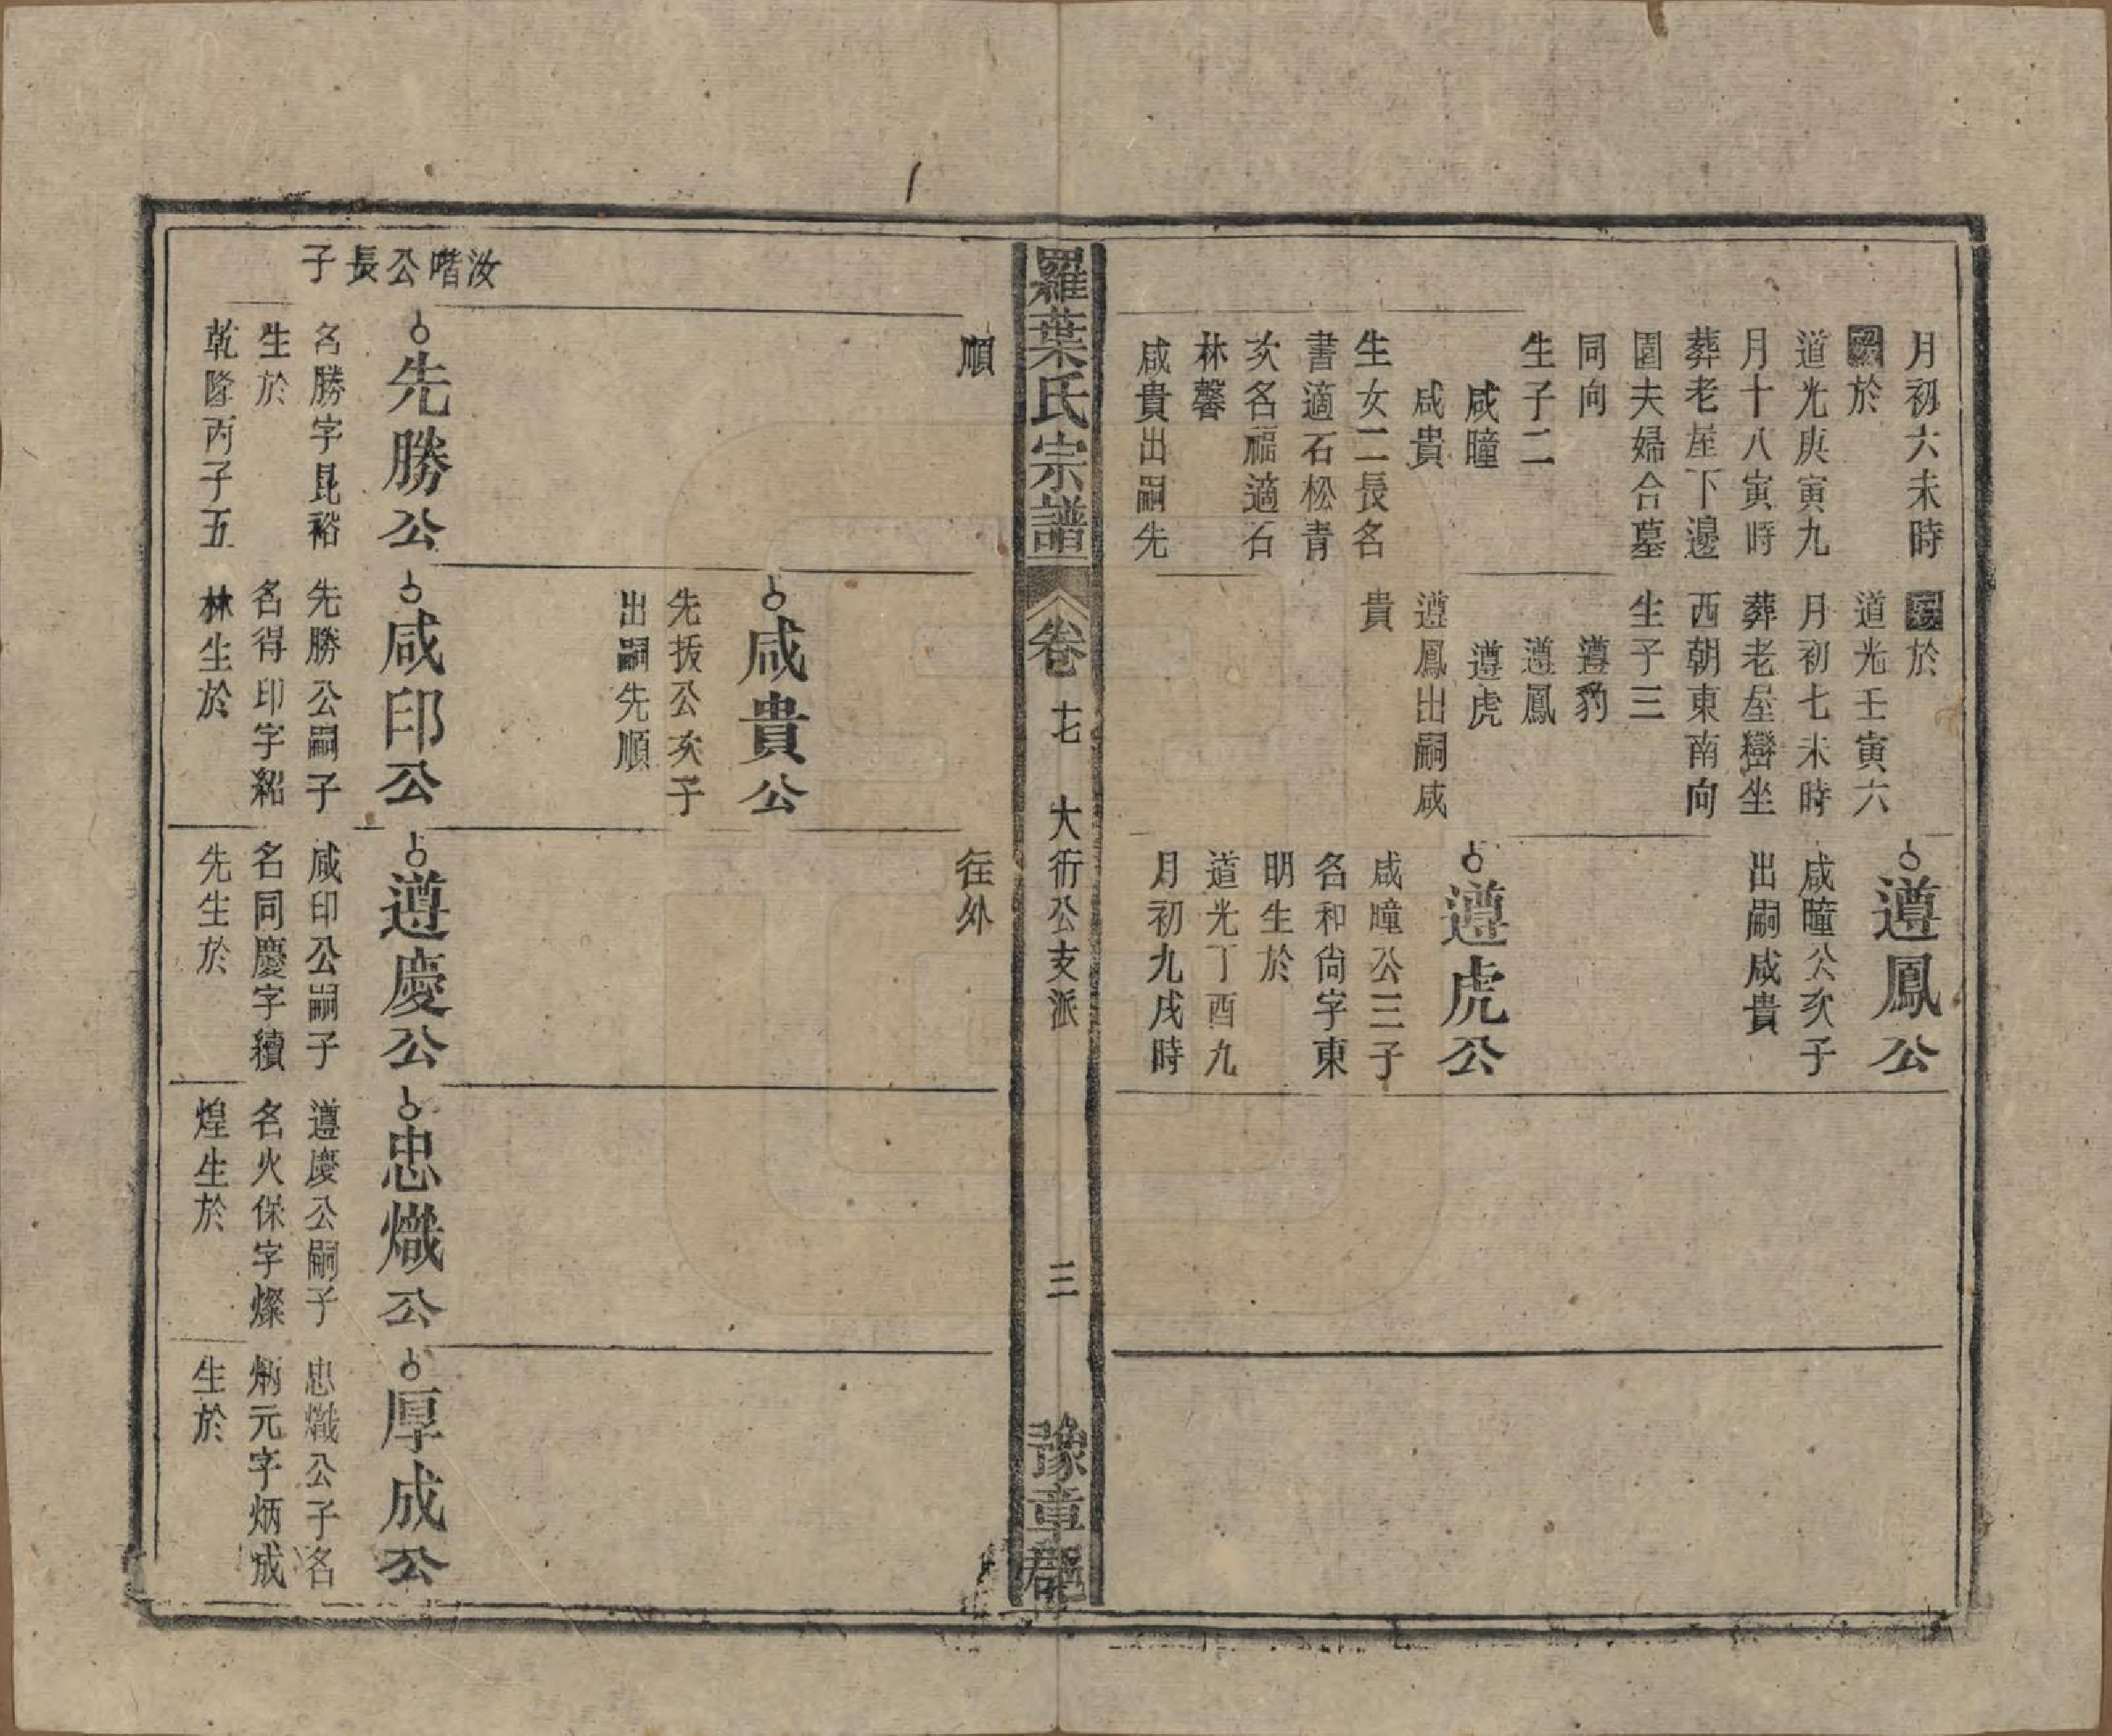 月初六未時
於
道光庚寅九
月十八寅時
葬老屋下邊
園夫婦合墓
同向
生子二
咸曈
咸貴
生女二長名
書適石松青
次名福適石
林馨
咸貴出嗣先
順
於
道光壬寅六
月初七未時
葬老屋巒坐
西朝東南向
生子三
遵豹
遵鳳
遵虎
遵鳳出嗣咸
貴
遵鳳公
咸曈公次子
出嗣咸貴
遵虎公
咸曈公三子
名和尚字東
明生於
道光丁酉九
月初九戌時
往外
羅葉氏宗譜
卷十七
大衍公支派
三
豫章郡
咸貴公
先扳公次子
出嗣先順
汝階公長子
先勝公
名勝字昆裕
生於
乾隆丙子五
咸印公
先勝公嗣子
名得印字紹
林生於
遵慶公
咸印公嗣子
名同慶字續
先生於
忠熾公
遵慶公嗣子
名火保字燦
煌生於
厚成公
忠熾公子名
炳元字炳成
生於